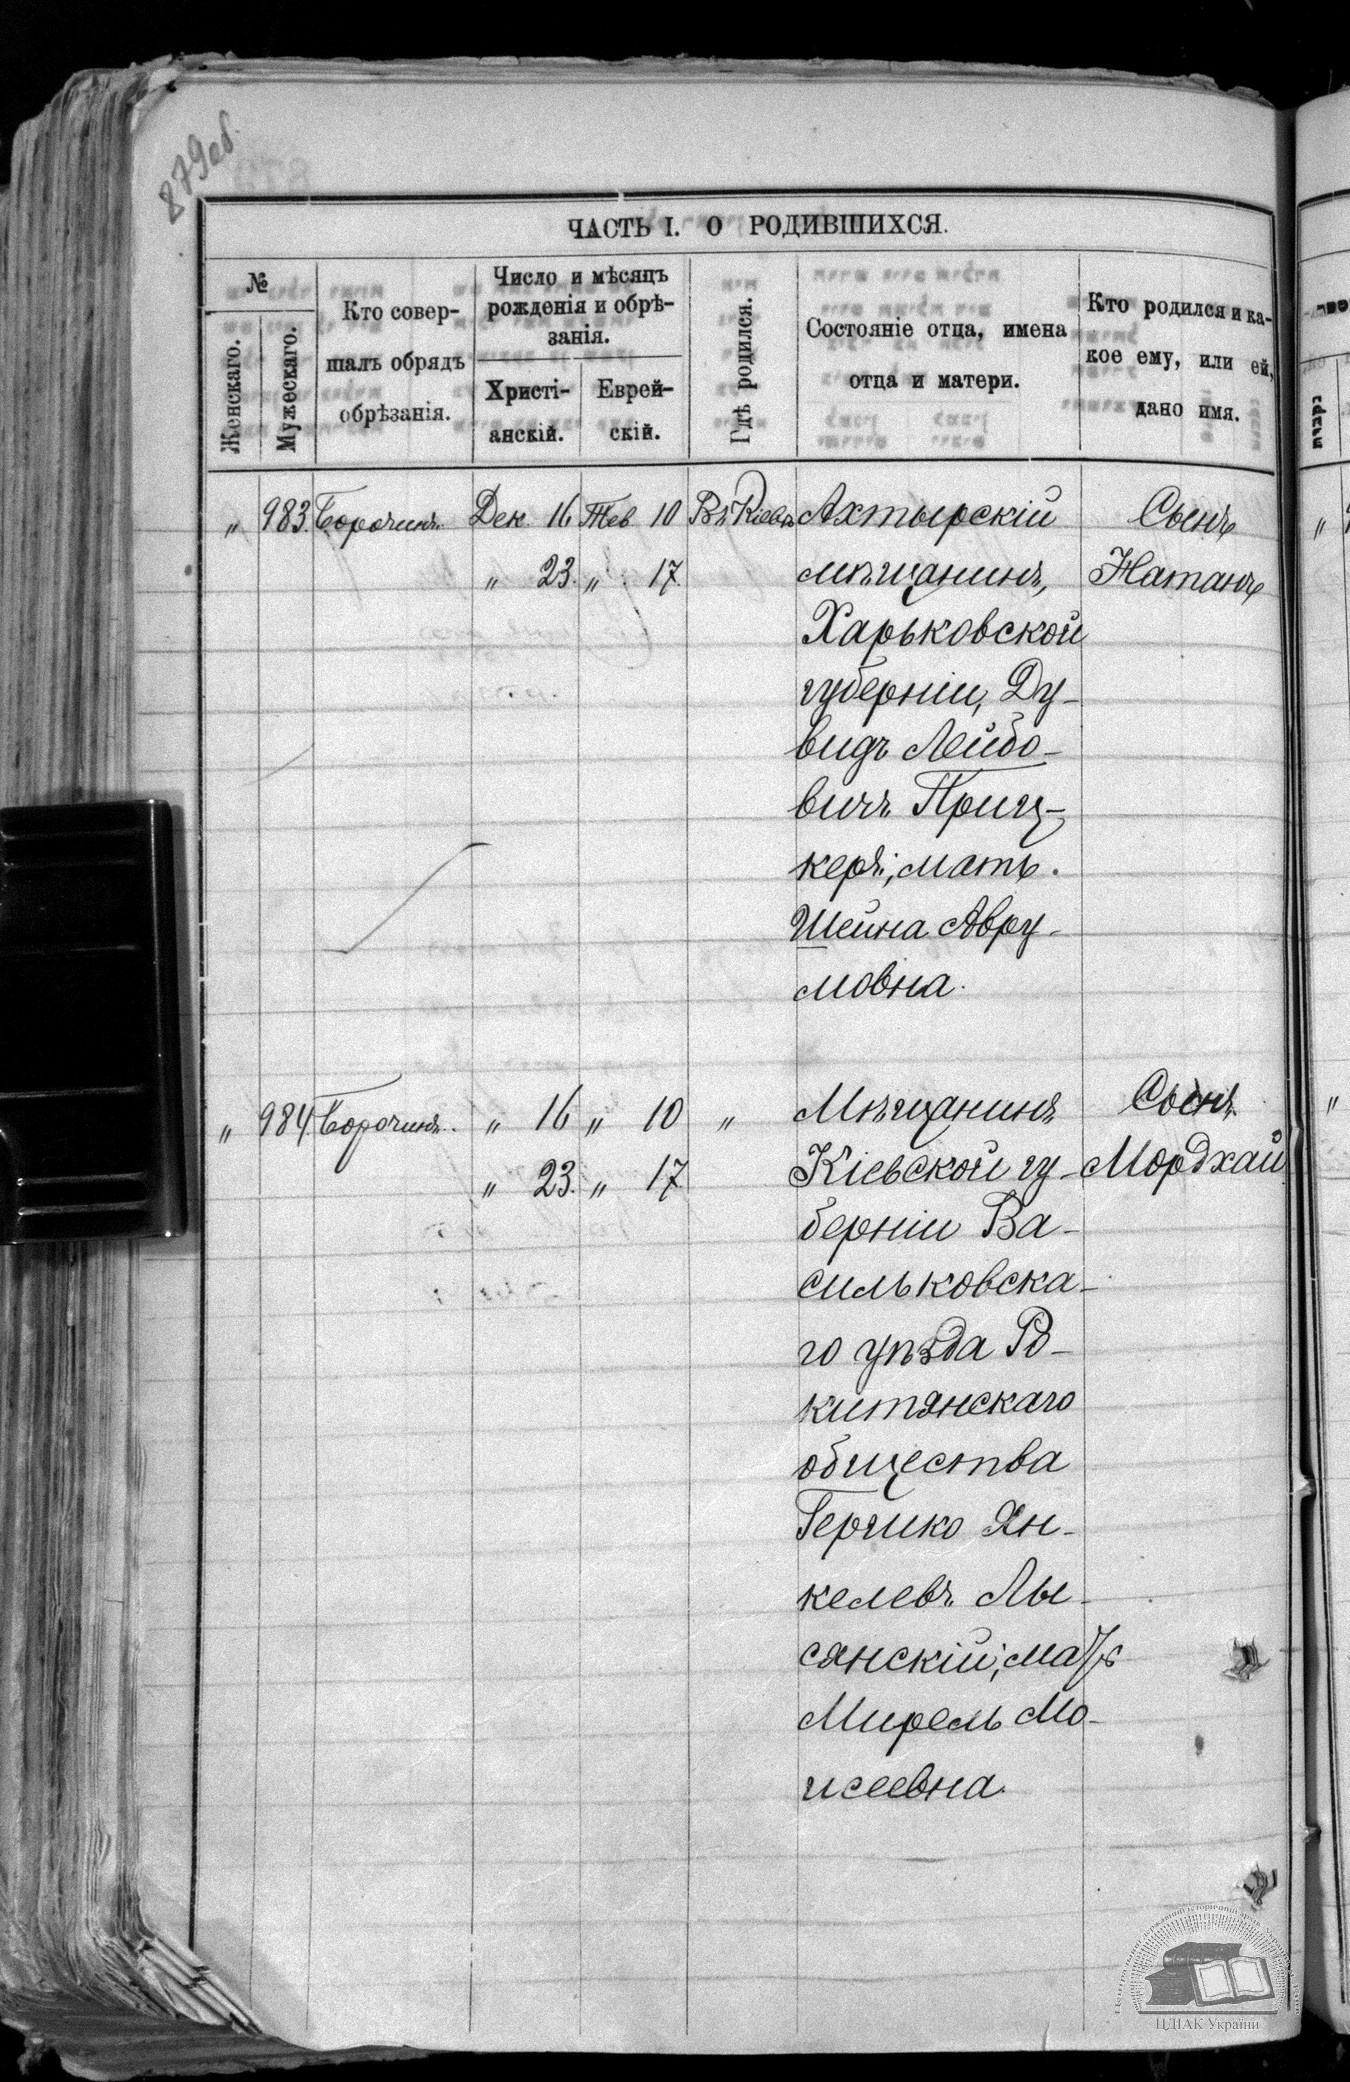 879об.
ЧАСТЬ I. О РОДИВШИХСЯ.
№
Женскаго.
Мужескаго.
Кто совер-
шалъ обрядъ
обрѣзанія.
Число и мѣсяцъ
рожденія и обрѣ-
занія.
Христі-
анскій.
Еврей-
скій.
Гдѣ родился.
Состояніе отца, имена
отца и матери.
Кто родился и ка-
кое ему, или ей,
дано имя.
„ 983. Борочинъ. Дек. 16 Тев 10 Въ Кіевѣ Ахтырскій Сынъ
„ 23. „ 17. мѣщанинъ, Натанъ
Харьковской
губерніи, Ду-
видъ Лейбо-
вичъ Приц-
керъ; мать.
Шейна Авру-
мовна.
„ 984. Борочинъ. „ 16 „ 10 „ Мѣщанинъ Сынъ.
„ 23. „ 17 Кіевской гу- Мордхай
берніи Ва-
сильковска-
го уѣзда Ро-
китянскаго
общества
Гершко Ян-
келевъ Лы-
сянскій; мать
Мирель Мо-
исеевна.
ЦДІАК України